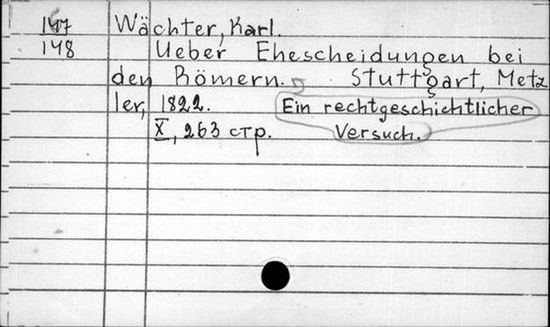 147 Wächter, Karl.
148 Ueber Ehescheidungen bei
den Römern. Stuttgart, Metz
ler, 1822. Ein rechtgeschichtlicher
X, 263 стр. Versuch.